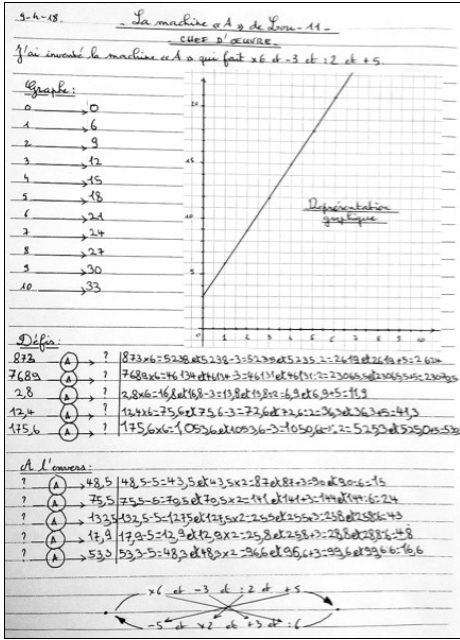 9-4-18.
La machine « A » de Lou-11-
CHEF D'ŒUVRE.
J'ai inventé la machine « A » qui fait x6 et -3 et :2 et +5.
Graphe :
0 → 0
1 → 6
2 → 9
3 → 12
4 → 15
5 → 18
6 → 21
7 → 24
8 → 27
9 → 30
10 → 33
20
15
10
5
0 1 2 3 4 5 6 7 8 9 10
Représentation graphique
Défis :
873 A → ? 873x6=5238et5238-3=5235et5235:2=2619et2619+5=2624
7689 A → ? 7689x6=46134et46134-3=46131et46131:2=23065,5et23065,5+5=23070,5
2,8 A → ? 2,8x6=16,8et16,8-3=13,8et13,8:2=6,9et6,9+5=11,9
12,4 A → ? 12,4x6=75,6et75,6-3=72,6et72,6:2=36,3et36,3+5=41,3
175,6 A → ? 175,6x6=1053,6et1053,6-3=1050,6
A l'envers :
? A → 48,5 48,5-5=43,5et43,5x2=87et87+3=90et90:6=15
? A → 75,5 75,5-5=70,5et70,5x2=141et141+3=144et144:6=24
? A → 132,5 132,5-5=127,5et127,5x2=255et255+3=258et258:6=43
? A → 17,9 17,9-5=12,9et12,9x2=25,8et25,8+3=28,8et28,8:6=4,8
? A → 53,3 53,3-5=48,3et48,3x2=96,6et96,6+3=99,6et99,6:6=16,6
x6 et -3 et :2 et +5
-5 et x2 et +3 et :6